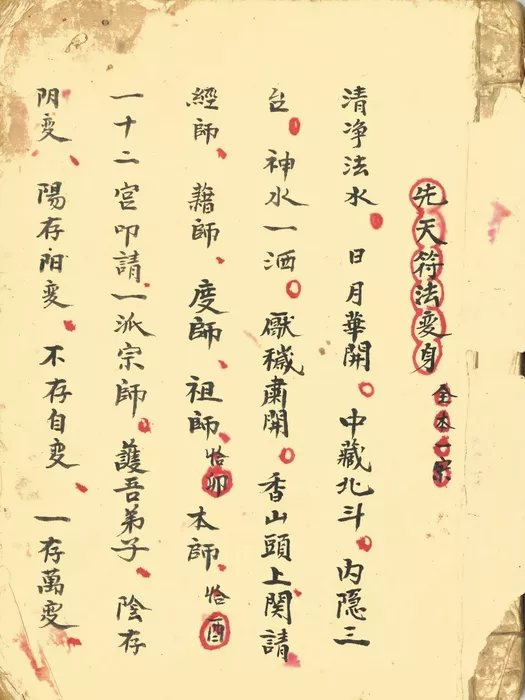 先天符法変身 全本一宗
清净法水。日月華開。中藏北斗。内隐三
台。神水一洒。厭穢肅開。香山頭上関請
經師、籍師、度師、祖師、恰卯本師、恰酉
一十二宮叩請、一派宗師。護吾弟子、陰存
阴変、陽存阳変、不存自変、一存萬変、